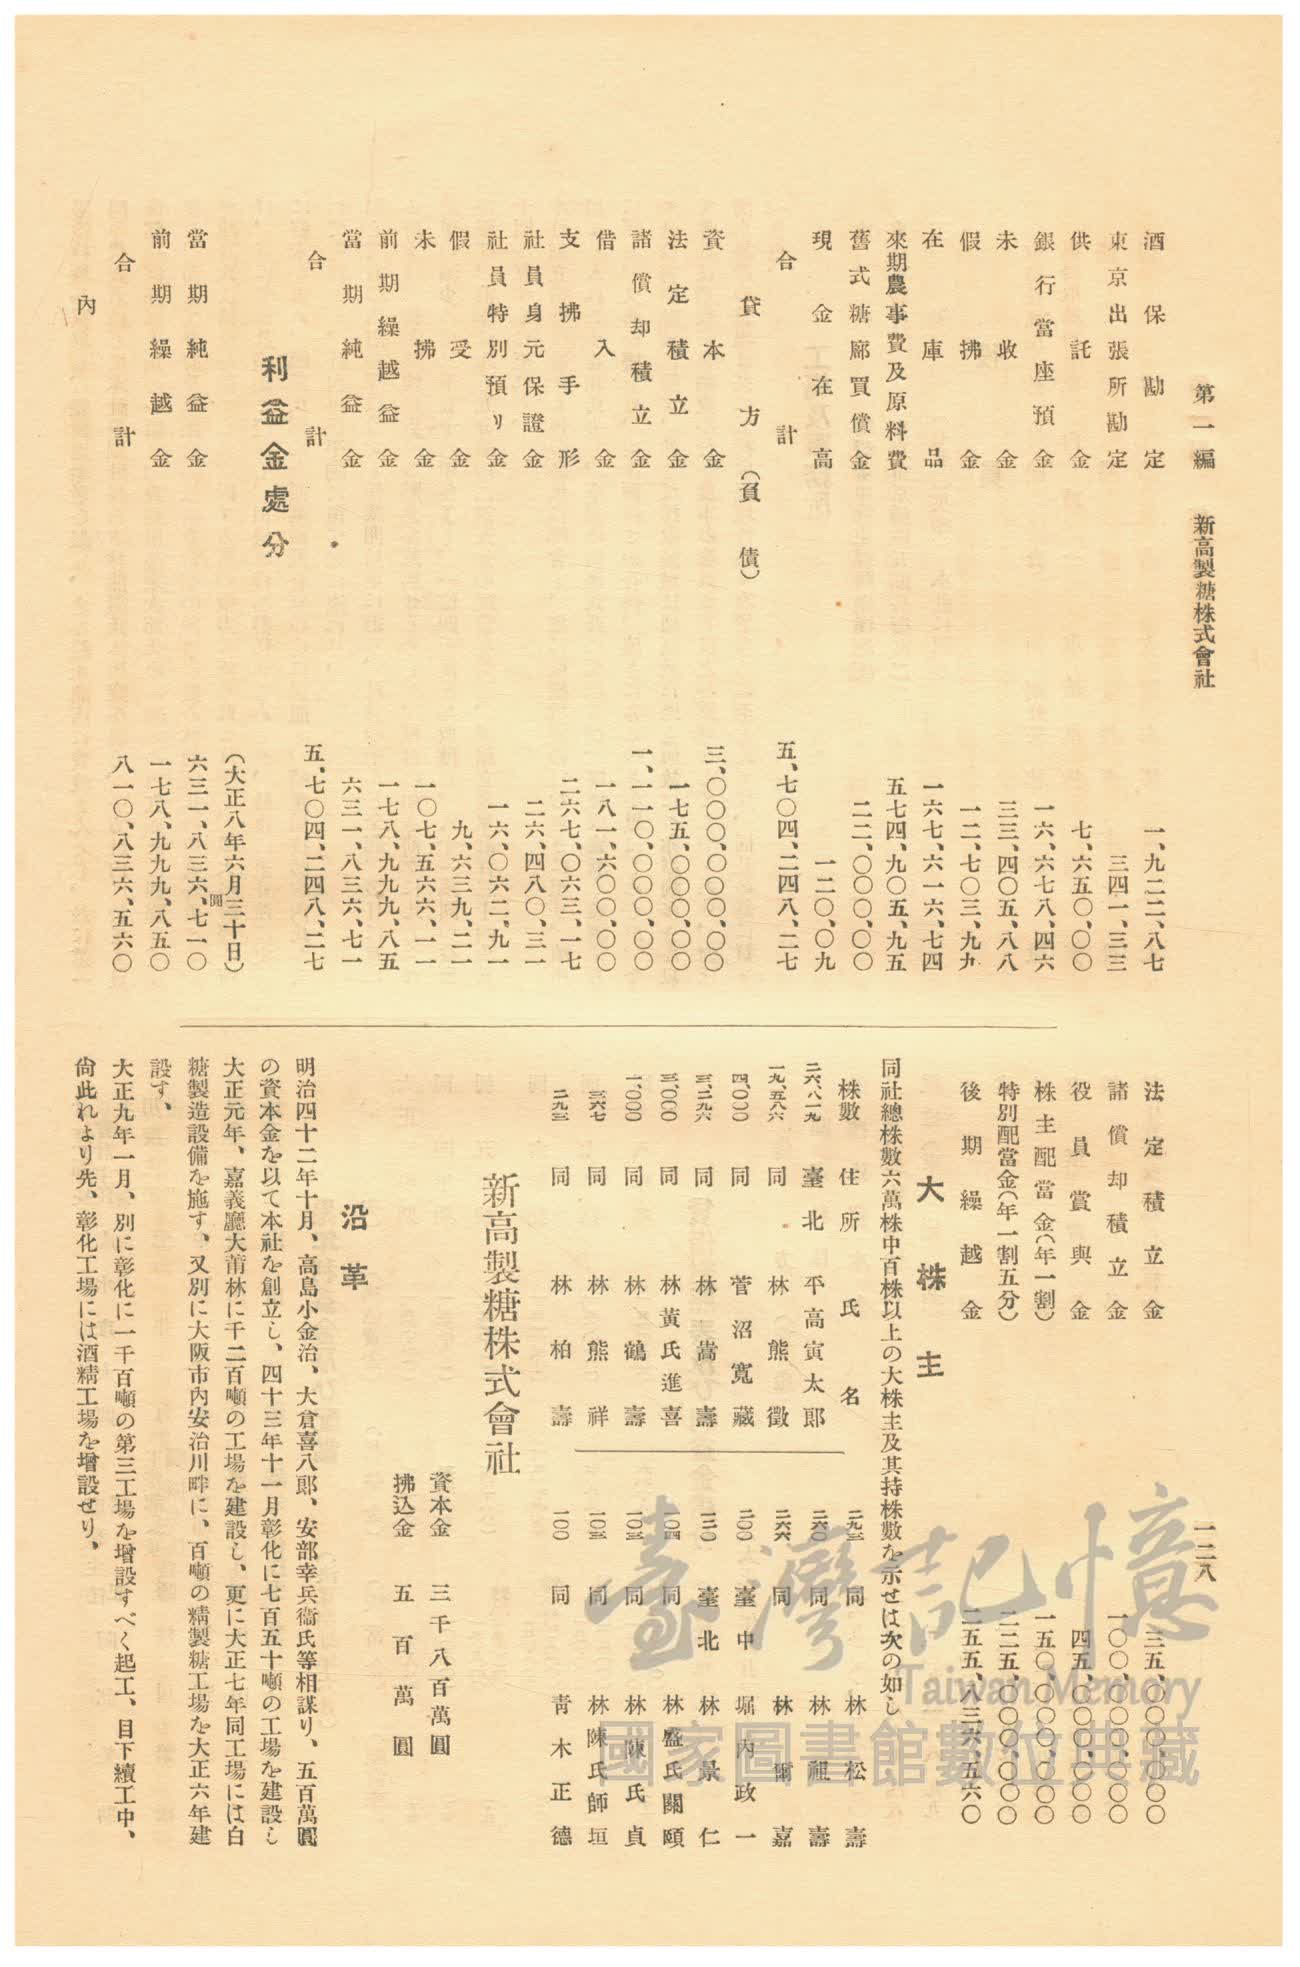 第一編　新高製糖株式會社
一二八
酒保勘定　一、九二二、八七
東京出張所勘定　三四一、三三
供託金　七、六五〇、〇〇
銀行當座預金　一六、六七八、四六
未收金　三三、四〇五、八八
假拂金　一二、七〇三、九九
在庫品　一六七、六一六、七四
來期農事費及原料費　五七四、九〇五、九五
舊式糖廍買償金　二二、〇〇〇、〇〇
現金在高　一二〇、〇九
合計　五、七〇四、二四八、二七
貸方（負債）
資本金　三、〇〇〇、〇〇〇、〇〇
法定積立金　一七五、〇〇〇、〇〇
諸償却積立金　一、一一〇、〇〇〇、〇〇
借入金　一八一、六〇〇、〇〇
支拂手形　二六七、〇六三、一七
社員身元保證金　二六、四八〇、三一
社員特別預リ金　一六、〇六二、九一
假受金　九、六三九、二一
未拂金　一〇七、五六六、一一
前期繰越益金　一七八、九九九、八五
當期純益金　六三一、八三六、七一
合計　五、七〇四、二四八、二七
利益金處分
（大正八年六月三十日）
當期純益金　六三一、八三六、七一〇圓
前期繰越金　一七八、九九九、八五〇
合計　八一〇、八三六、五六〇
內
法定積立金　三五、〇〇〇、〇〇〇
諸償却積立金　一〇〇、〇〇〇、〇〇〇
役員賞與金　四五、〇〇〇、〇〇〇
株主配當金（年一割）　一五〇、〇〇〇、〇〇〇
特別配當金（年一割五分）　二二五、〇〇〇、〇〇〇
後期繰越金　二五五、八三六、五六〇
大株主
同社總株數六萬株中百株以上の大株主及其持株數を示せは次の如し
株數　住所　氏名
二六、八一九　臺北　平高寅太郎
一九、五八六　同　林熊徵
四、〇〇〇　同　菅沼寬藏
三、二九六　同　林嵩壽
三、〇〇〇　同　林黃氏進喜
一、〇〇〇　同　林鶴壽
三六七　同　林熊祥
二九三　同　林柏壽
二九三　同　林松壽
二六〇　同　林祖壽
二六六　同　林爾嘉
二〇〇　臺中　堀內政一
一二〇　臺北　林景仁
一〇四　同　林盛氏關頤
一〇三　同　林陳氏貞
一〇三　同　林陳氏師垣
一〇〇　同　靑木正德
新高製糖株式會社
資本金　三千八百萬圓
拂込金　五百萬圓
沿革
明治四十二年十月、高島小金治、大倉喜八郎、安部幸兵衞氏等相謀り、五百萬圓
の資本金を以て本社を創立し、四十三年十一月彰化に七百五十噸の工場を建設し
大正元年、嘉義廳大莆林に千二百噸の工場を建設し、更に大正七年同工場には白
糖製造設備を施す、又別に大阪市內安治川畔に、百噸の精製糖工場を大正六年建
設す、
大正九年一月、別に彰化に一千百噸の第三工場を增設すべく起工、目下續工中、
尙此れより先、彰化工場には酒精工場を增設せり、
臺灣記憶
Taiwan Memory
國家圖書館數位典藏